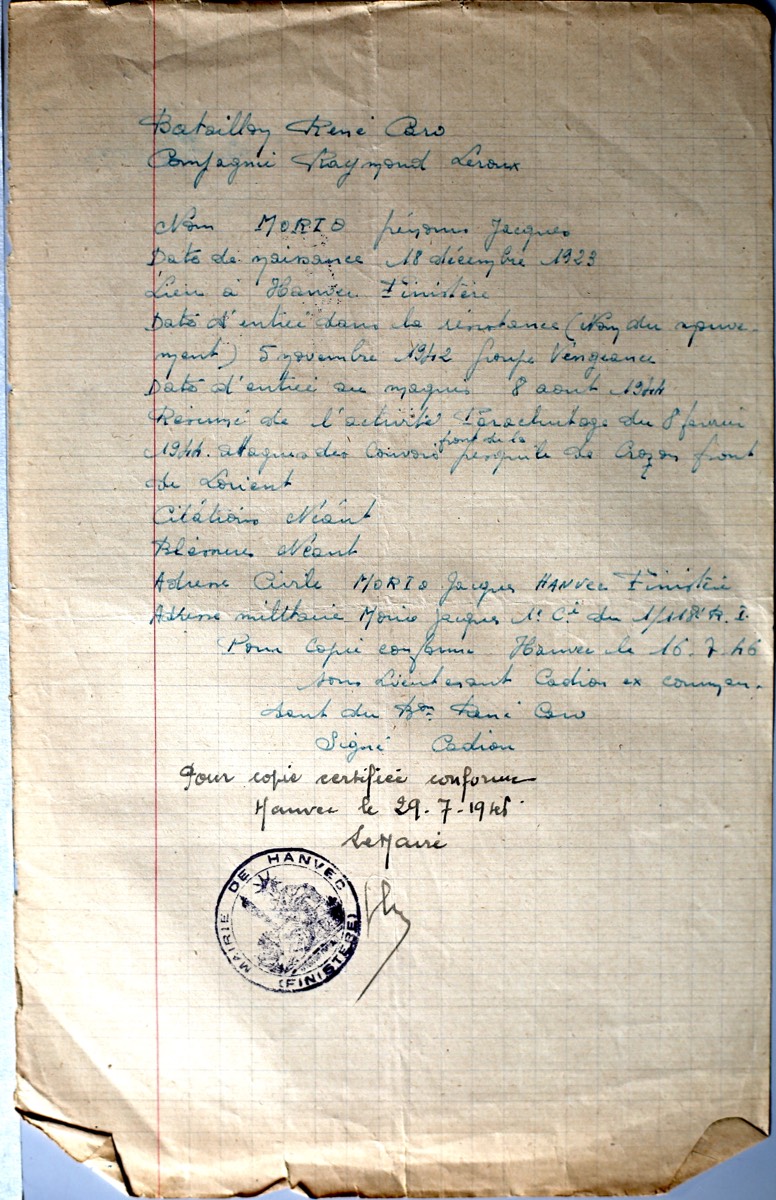 Bataillon René Caro
Compagnie Raymond Leroux
Nom MORIO prénoms Jacques
Date de naissance 18 décembre 1923
Lieu à Hanvec Finistère
Date d'entrée dans la résistance (Nom du mouve-
ment) 5 novembre 1942 Groupe Vengeance
Date d'entrée au maquis 8 aout 1944
Résumé de l'activité Parachutage du 8 fevrier
1944 attaques des Convois front de la presqu'ile de Crozon front
de Lorient
Citations Néant
Blessures Néant
Adresse Civile MORIO Jacques HANVEC Finistère
Adresse militaire Morio Jacques 1e Cie du 1/118e R.I.
Pour Copie conforme Hanvec le 16.7.46
Sous Lieutenant Cadiou ex comman-
dant du Bon René Caro
Signé Cadiou
Pour copie certifiée conforme
Hanvec le 29-7-194
Le Maire
MAIRIE DE HANVEC
(FINISTERE)